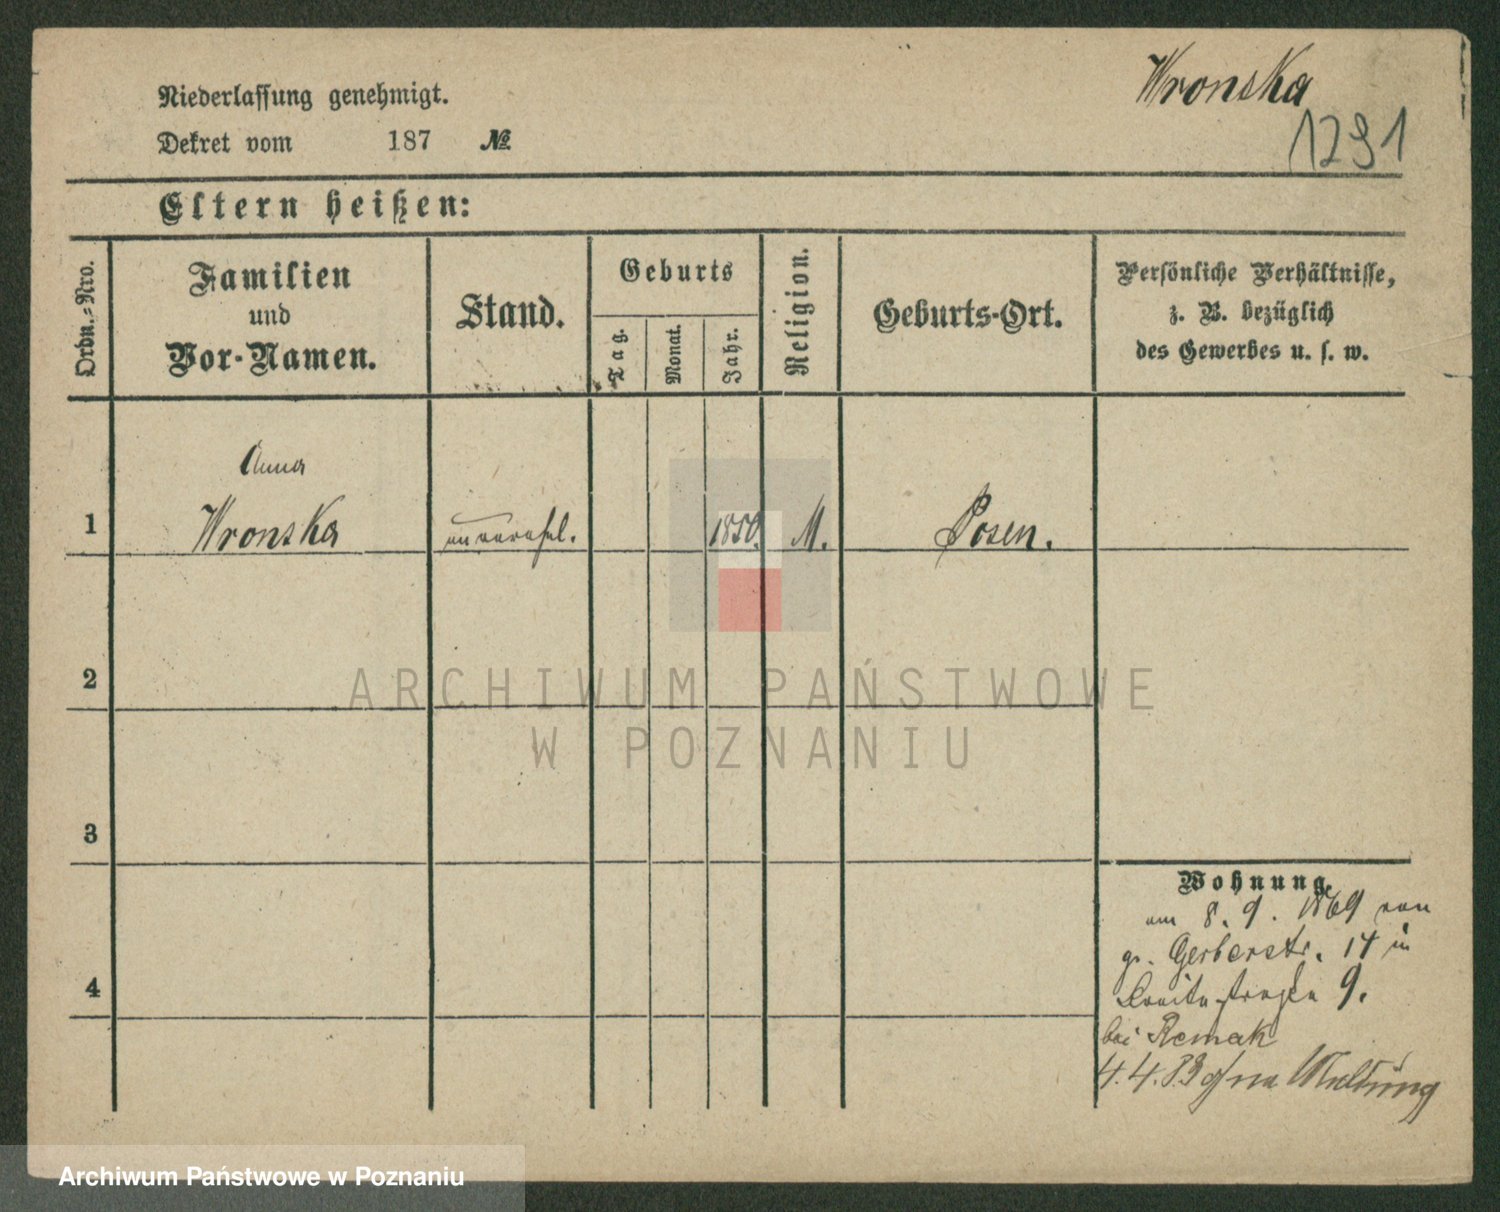 Wronska
1291
Niederlassung genehmigt.
Dekret vom 187 №
Eltern heißen:
Ordn.-Nro.
Familien
und
Vor-Namen.
Stand.
Geburts
Tag.
Monat.
Jahr.
Religion.
Geburts-Ort.
Persönliche Verhältnisse,
z. B. bezüglich
des Gewerbes u. s. w.
Anna
1 Wronska unverehel. 1850. M. Posen.
2
3
4
Wohnung.
am 8. 9. 1869 von
gr. Gerberstr. 14 in
Breitestraße 9.
bei Remak
4. 4. 83 ohne Meldung
ARCHIWUM PAŃSTWOWE
W POZNANIU
Archiwum Państwowe w Poznaniu